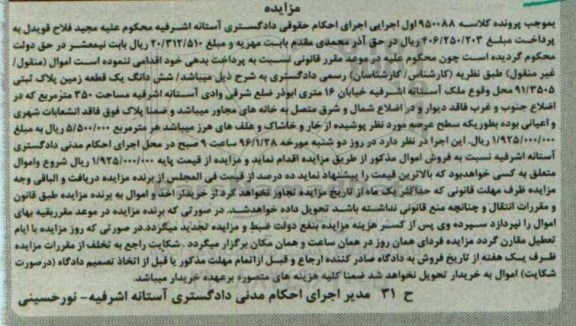 مزایده
بموجب پرونده کلاسه ۹۵۰۰۸۸ اول اجرایی اجرای احکام حقوقی دادگستری آستانه اشرفیه محکوم علیه مجید فلاح قویدل به
پرداخت مبلغ ۴۰۶/۲۵۰/۲۰۳ ریال در حق آذر محمدی مقدم بابت مهریه و مبلغ ۲۰/۳۱۲/۵۱۰ ریال بابت نیمعشر در حق دولت
محکوم گردیده است چون محکوم علیه در موعد مقرر قانونی نسبت به پرداخت بدهی خود اقدامی ننموده است اموال (منقول/
غیر منقول) طبق نظریه (کارشناس/ کارشناسان) رسمی دادگستری به شرح ذیل میباشد/ شش دانگ یک قطعه زمین پلاک ثبتی
۹۱/۳۵۰۵ محل وقوع ملک آستانه اشرفیه خیابان ۱۶ متری ابوذر ضلع شرقی وادی آستانه اشرفیه مساحت ۳۵۰ مترمربع که در
اضلاع جنوب و غرب فاقد دیوار و در اضلاع شمال و شرق متصل به خانه های مجاور میباشد و ضمنا پلاک فوق فاقد انشعابات شهری
و اعیانی بوده بطوریکه سطح عرصه مورد نظر پوشیده از خار و خاشاک و علف های هرز میباشد هر مترمربع ۵/۵۰۰/۰۰۰ ریال به مبلغ
۱/۹۲۵/۰۰۰/۰۰۰ ریال. این اجرا در نظر دارد در روز دو شنبه مورخه ۹۶/۱/۲۸ ساعت ۹ صبح در محل اجرای احکام مدنی دادگستری
آستانه اشرفیه نسبت به فروش اموال مذکور از طریق مزایده اقدام نماید و مزایده از قیمت پایه ۱/۹۲۵/۰۰۰/۰۰۰ ریال شروع واموال
متعلق به کسی خواهدبود که بالاترین قیمت را پیشنهاد نماید ده درصد از قیمت فی المجلس از برنده مزایده دریافت و الباقی وجه
مزایده ظرف مهلت قانونی که حداکثر یک ماه از تاریخ مزایده تجاوز نخواهد کرد از خریدار اخذ و اموال به برنده مزایده طبق قانون
و مقررات انتقال و چنانچه منع قانونی نداشته باشد تحویل داده خواهدشد. در صورتی که برنده مزایده در موعد مقرربقیه بهای
اموال را نپردازد سپرده وی پس از کسر هزینه مزایده بنفع دولت ضبط و مزایده تجدید میگردد.در صورتی که روز مزایده با ایام
تعطیل مقارن گردد مزایده فردای همان روز در همان ساعت و همان مکان برگزار میگردد . شکایت راجع به تخلف از مقررات مزایده
ظرف یک هفته از تاریخ فروش به دادگاه صادر کننده ارجاع و قبل ازاتمام مهلت مذکور یا قبل از اتخاذ تصمیم دادگاه (درصورت
شکایت) اموال به خریدار تحویل نخواهد شد ضمنا کلیه هزینه های متصوره برعهده خریدار میباشد.
ح ۳۱ مدیر اجرای احکام مدنی دادگستری آستانه اشرفیه- نورحسینی